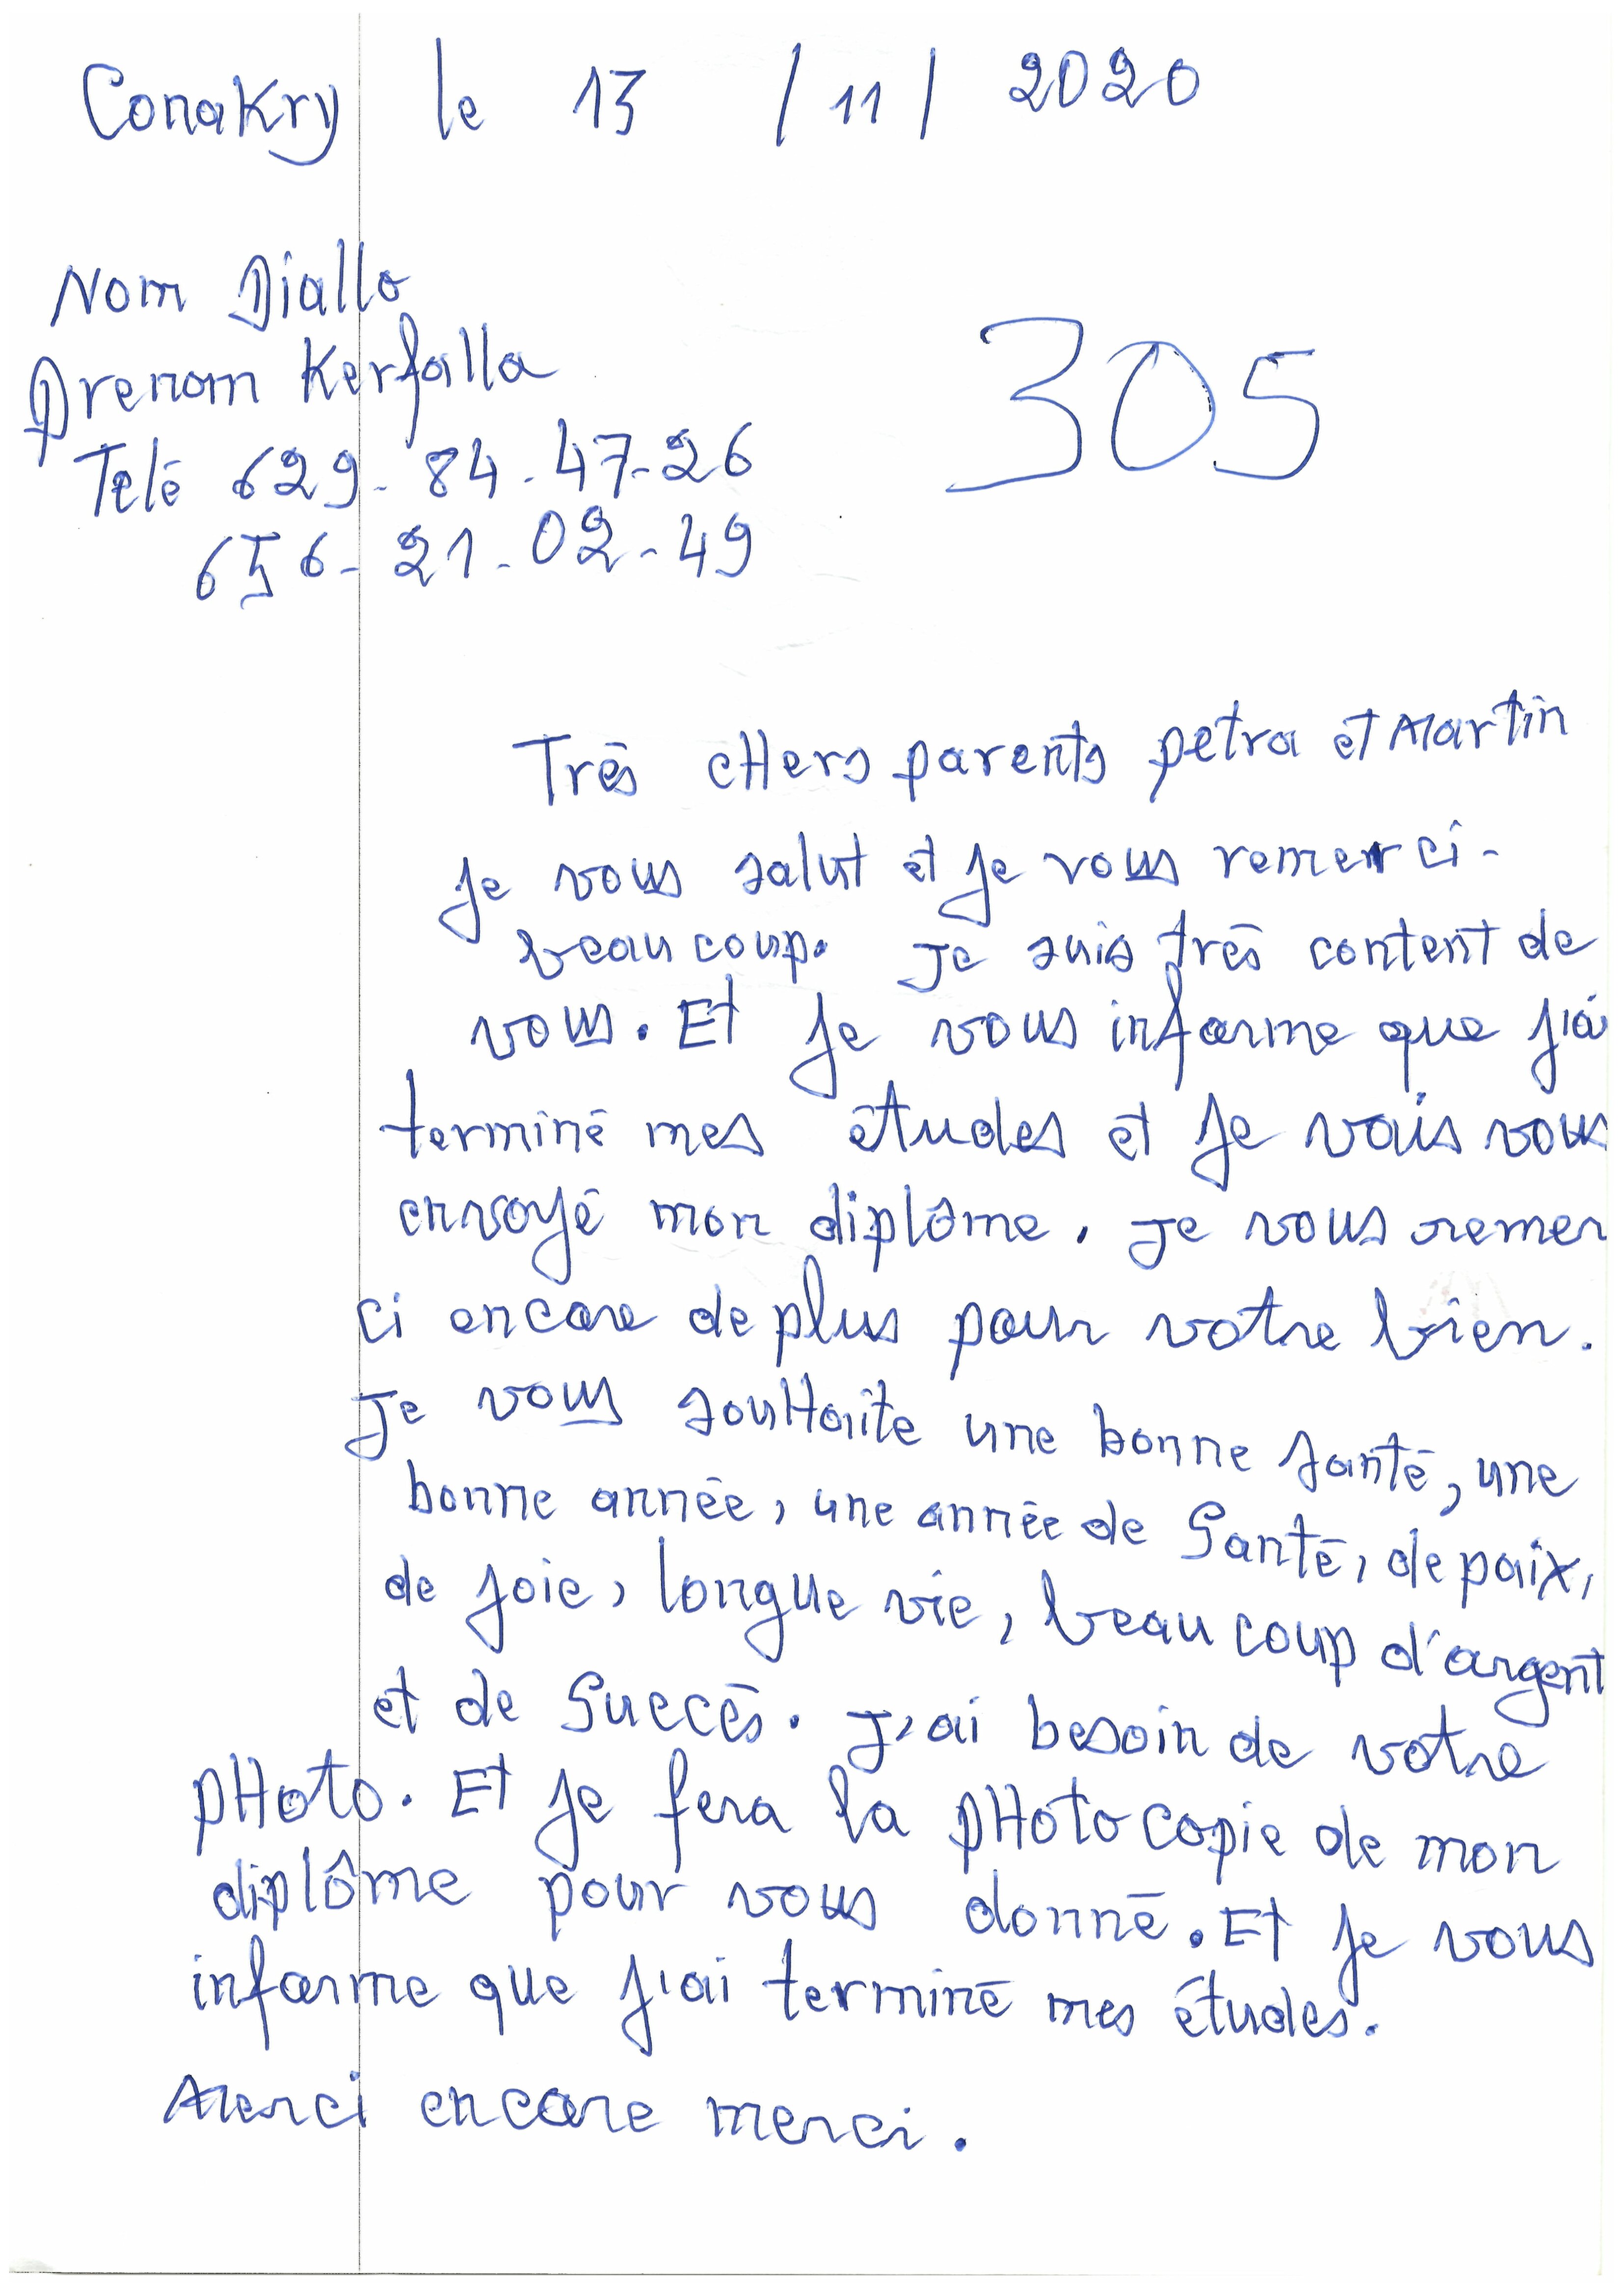 Conakry le 13 / 11 / 2020
Nom Diallo
Prenom Kerfalla
305
Telé 629-84-47-26
656-21-02-49
Très cHers parents petra et Martin
je vous salut et je vous remerci-
beaucoup. Je suis très content de
vous. Et je vous informe que j'ai
terminé mes études et je vais vous
envoyé mon diplôme. Je vous remer
ci encore de plus pour votre bien.
Je vous souHaite une bonne santé, une
bonne année, une année de Santé, de paix,
de joie, longue vie, beaucoup d'argent
et de Succès. J'ai besoin de votre
pHoto. Et je fera la pHotocopie de mon
diplôme pour vous donné. Et je vous
informe que j'ai terminé mes études.
Merci encore merci.